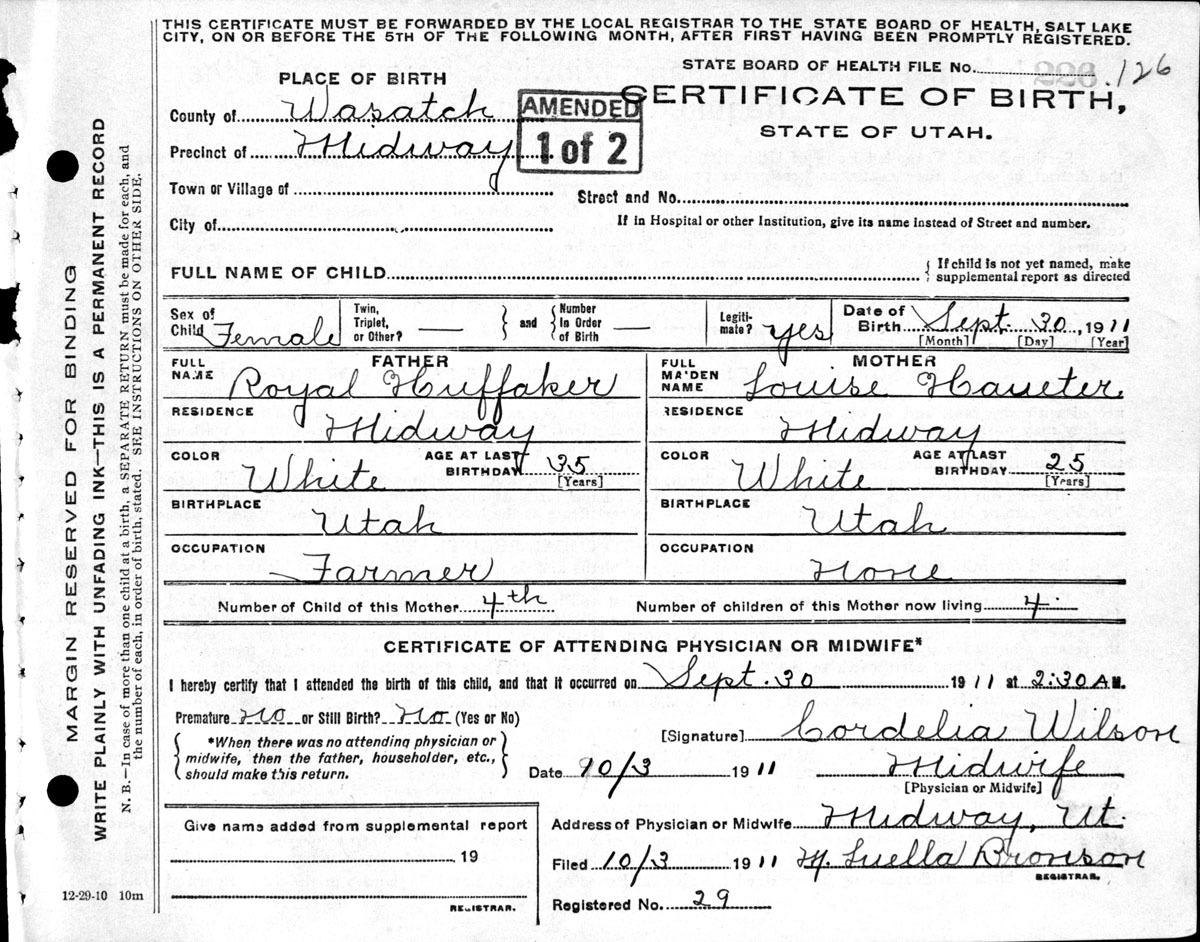 THIS CERTIFICATE MUST BE FORWARDED BY THE LOCAL REGISTRAR TO THE STATE BOARD OF HEALTH, SALT LAKE
CITY, ON OR BEFORE THE 5TH OF THE FOLLOWING MONTH, AFTER FIRST HAVING BEEN PROMPTLY REGISTERED.
STATE BOARD OF HEALTH FILE No. 126
PLACE OF BIRTH
CERTIFICATE OF BIRTH,
STATE OF UTAH.
AMENDED
1 of 2
County of Wasatch
Precinct of Midway
Town or Village of
Street and No.
City of
If in Hospital or other Institution, give its name instead of Street and number.
FULL NAME OF CHILD
{ If child is not yet named, make
supplemental report as directed
Sex of Child Female
Twin, Triplet, or Other? — } and { Number In Order of Birth —
Legiti-mate? yes
Date of Birth Sept 30, 1911
[Month] [Day] [Year]
FATHER
FULL NAME Royal Huffaker
RESIDENCE Midway
COLOR White
AGE AT LAST BIRTHDAY 35
[Years]
BIRTHPLACE Utah
OCCUPATION Farmer
MOTHER
FULL MAIDEN NAME Louise Haueter
RESIDENCE Midway
COLOR White
AGE AT LAST BIRTHDAY 25
[Years]
BIRTHPLACE Utah
OCCUPATION None
Number of Child of this Mother 4th
Number of children of this Mother now living 4
CERTIFICATE OF ATTENDING PHYSICIAN OR MIDWIFE*
I hereby certify that I attended the birth of this child, and that it occurred on Sept. 30 1911 at 2:30 A.M.
Premature no or Still Birth? no (Yes or No)
{ *When there was no attending physician or
midwife, then the father, householder, etc.,
should make this return. }
[Signature] Cordelia Wilson
Date 10/3 1911 Midwife
[Physician or Midwife]
Give name added from supplemental report
19
REGISTRAR.
Address of Physician or Midwife Midway, Ut.
Filed 10/3 1911 M. Luella Bronson
REGISTRAR.
Registered No. 29
12-29-10 10m
MARGIN RESERVED FOR BINDING
WRITE PLAINLY WITH UNFADING INK—THIS IS A PERMANENT RECORD
N. B.—In case of more than one child at a birth, a SEPARATE RETURN must be made for each, and
the number of each, in order of birth, stated. SEE INSTRUCTIONS ON OTHER SIDE.